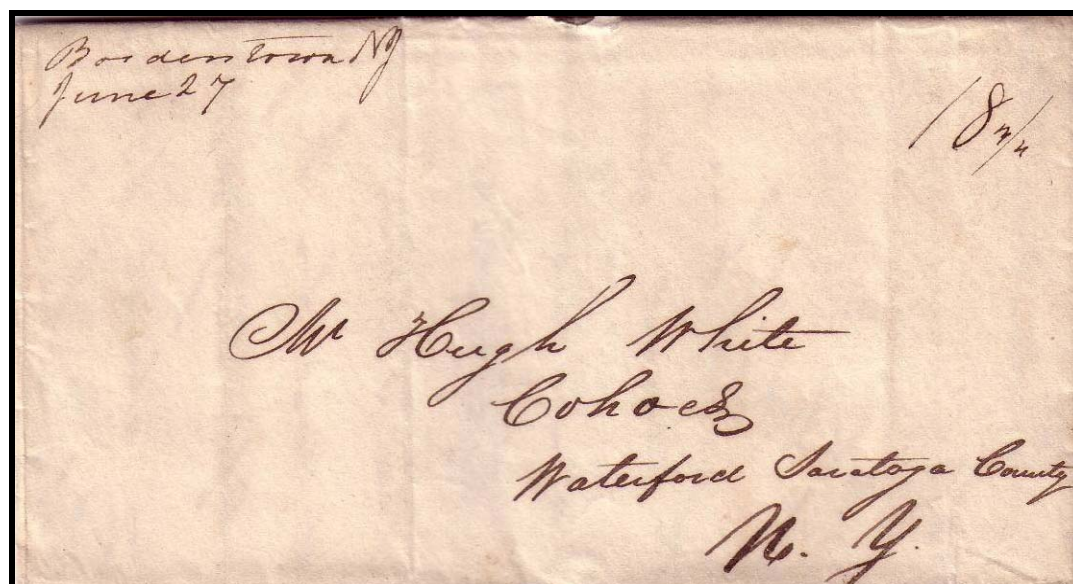 Bordentown NJ
June 27
18 3/4
Mr Hugh White
Cohoes
Waterford Saratoga County
N. Y.